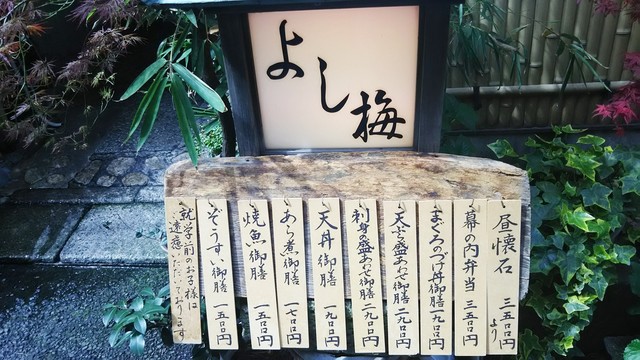 よし梅
昼懐石 三五〇〇円より
幕の内弁当 三五〇〇円
まぐろのづけ丼御膳 一九〇〇円
天ぷら盛あわせ御膳 二九〇〇円
刺身の盛あわせ御膳 二九〇〇円
天丼御膳 一九〇〇円
あら煮御膳 一七〇〇円
焼魚御膳 一五〇〇円
ぞうすい御膳 一五〇〇円
就学前のお子様は
ご遠慮いただいております